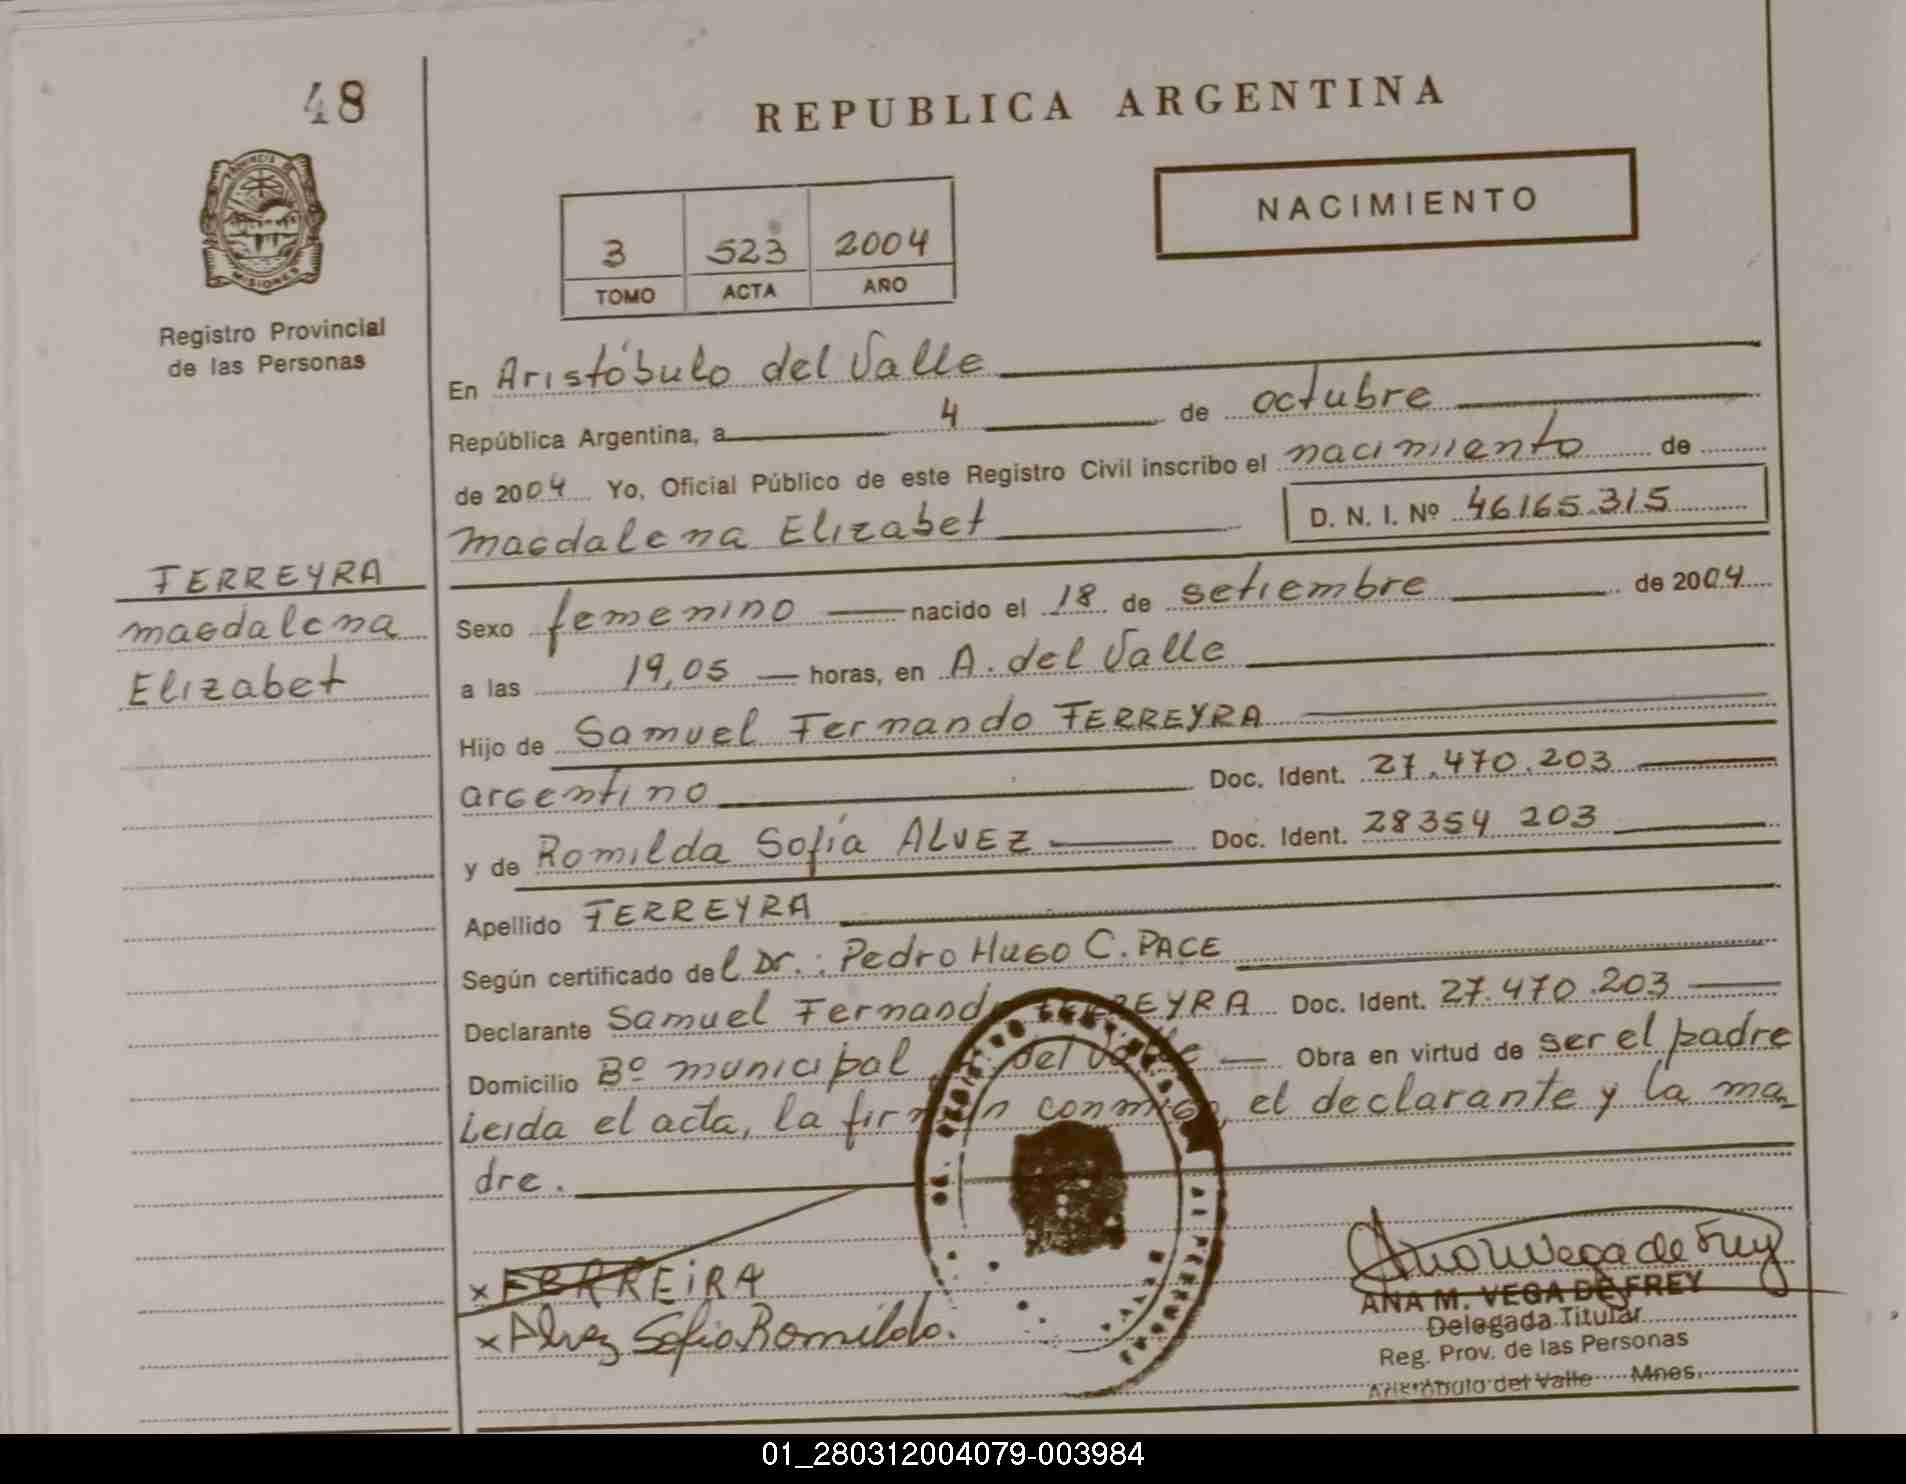 48
REPUBLICA ARGENTINA
NACIMIENTO
3 523 2004
TOMO ACTA AÑO
PROVINCIA DE
MISIONES
Registro Provincial
de las Personas
En Aristóbulo del Valle
República Argentina, a 4 de octubre
de 2004 Yo, Oficial Público de este Registro Civil inscribo el nacimiento de
Magdalena Elizabet D. N. I. Nº 46165.315
FERREYRA
Magdalena
Elizabet
Sexo femenino nacido el 18 de setiembre de 2004
a las 19,05 horas, en A. del Valle
Hijo de Samuel Fernando FERREYRA
argentino Doc. Ident. 27.470.203
y de Romilda Sofía ALVEZ Doc. Ident. 28354 203
Apellido FERREYRA
Según certificado del Dr.: Pedro Hugo C. PACE
Declarante Samuel Fernando FERREYRA Doc. Ident. 27.470.203
Domicilio Bº municipal del Valle Obra en virtud de ser el padre
Leida el acta, la firman conmigo, el declarante y la ma-
dre.
x FERREIRA
x Alvez Sofia Romilda.
Ana M Vega de Frey
ANA M. VEGA DE FREY
Delegada Titular
Reg. Prov. de las Personas
Aristóbulo del Valle Mnes.
01_280312004079-003984